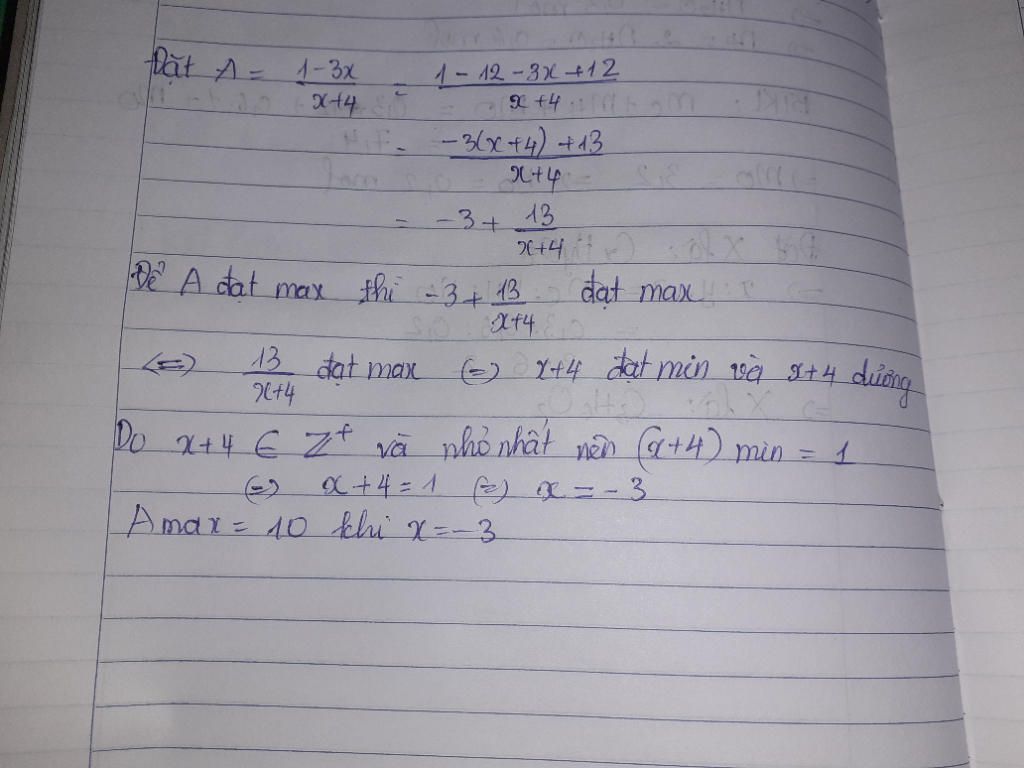 Đặt A = \frac{1-3x}{x+4} = \frac{1-12-3x+12}{x+4}
= \frac{-3(x+4)+13}{x+4}
= -3 + \frac{13}{x+4}
Để A đạt max thì -3 + \frac{13}{x+4} đạt max
<=> \frac{13}{x+4} đạt max (=) x+4 đạt min và x+4 dương
Do x+4 ∈ Z⁺ và nhỏ nhất nên (x+4) min = 1
(=) x+4 = 1 (=) x = -3
A max = 10 khi x = -3